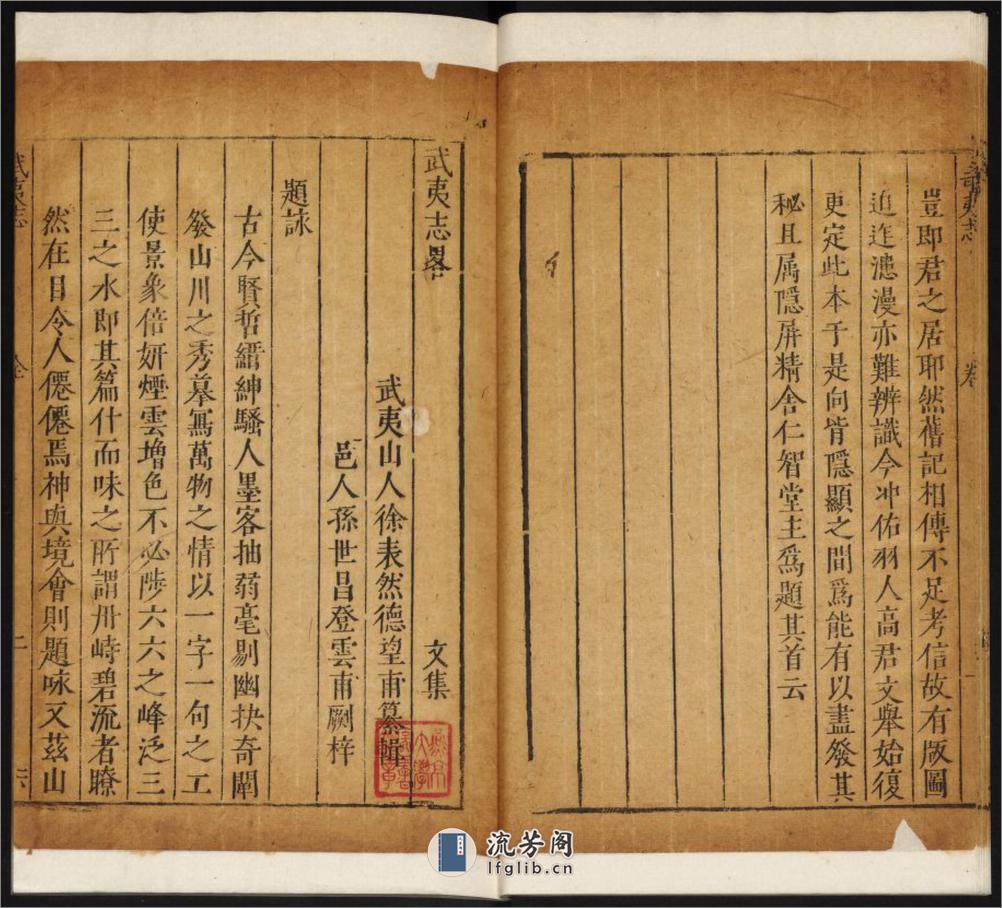 豈即君之居耶然舊記相傳不足考信故有版圖
追迮漶漫亦難辨識今冲佑羽人高君文舉始復
更定此本于是向背隱顯之間爲能有以盡發其
秘且属隱屏精舍仁智堂主爲題其首云
武夷志畧
文集
武夷山人徐表然德望甫纂輯
邑人孫世昌登雲甫劂梓
題詠
古今賢哲縉紳騷人墨客抽蒻毫剔幽抉奇闡
發山川之秀摹寫萬物之情以一字一句之工
使景象倍妍煙雲增色不必陟六六之峰泛三
三之水即其篇什而味之所謂丹崎碧流者瞭
然在目令人僊僊焉神與境會則題咏又茲山
武夷志
二
六
流芳阁
lfglib.cn